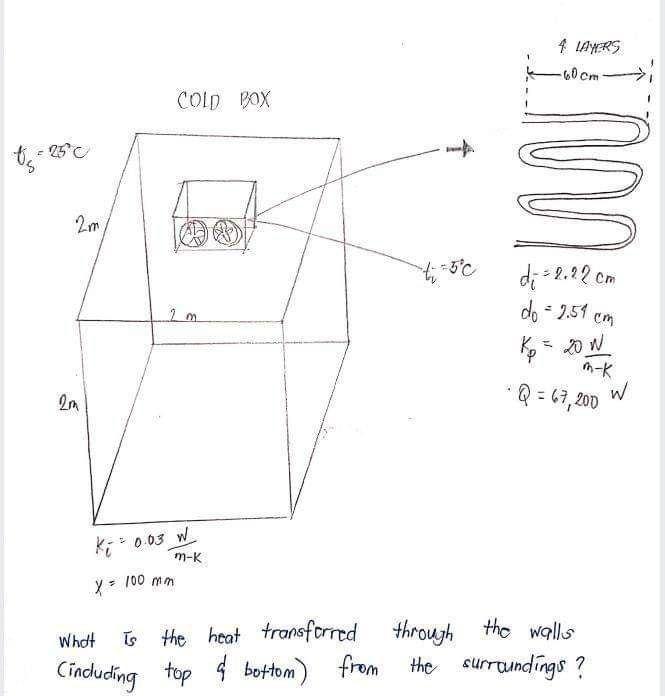 4 LAYERS
60 cm
COLD BOX
ts = 25°C
2m
ti = 5°C
2 m
2m
di = 2.22 cm
do = 2.54 cm
Kp = 20 W/m-K
Q = 67,200 W
Ki = 0.03 W/m-K
X = 100 mm
What is the heat transferred through the walls
(including top & bottom) from the surroundings ?